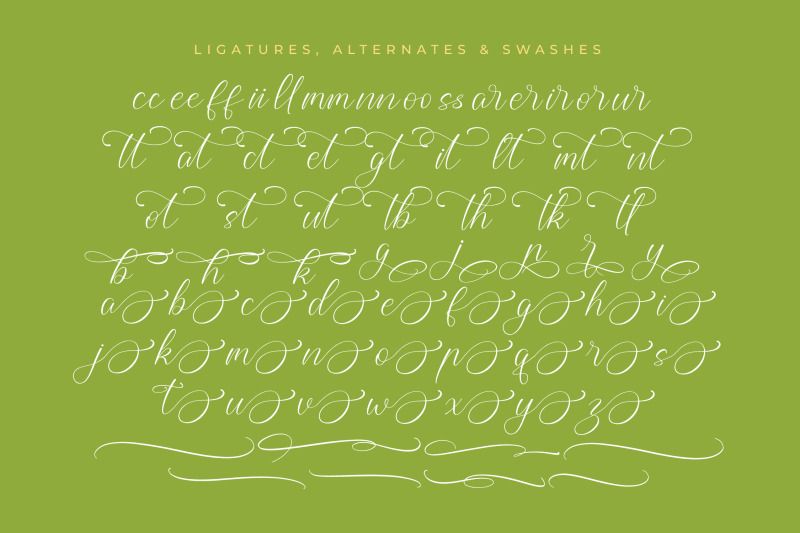 LIGATURES, ALTERNATES & SWASHES
cc ee ff ii ll mm nn oo ss ar er ir or ur
tt at ct et gt it lt mt nt
ot st ut tb th tk tl
b h k g j n r y
a b c d e f g h i
j k m n o p q r s
t u v w x y z